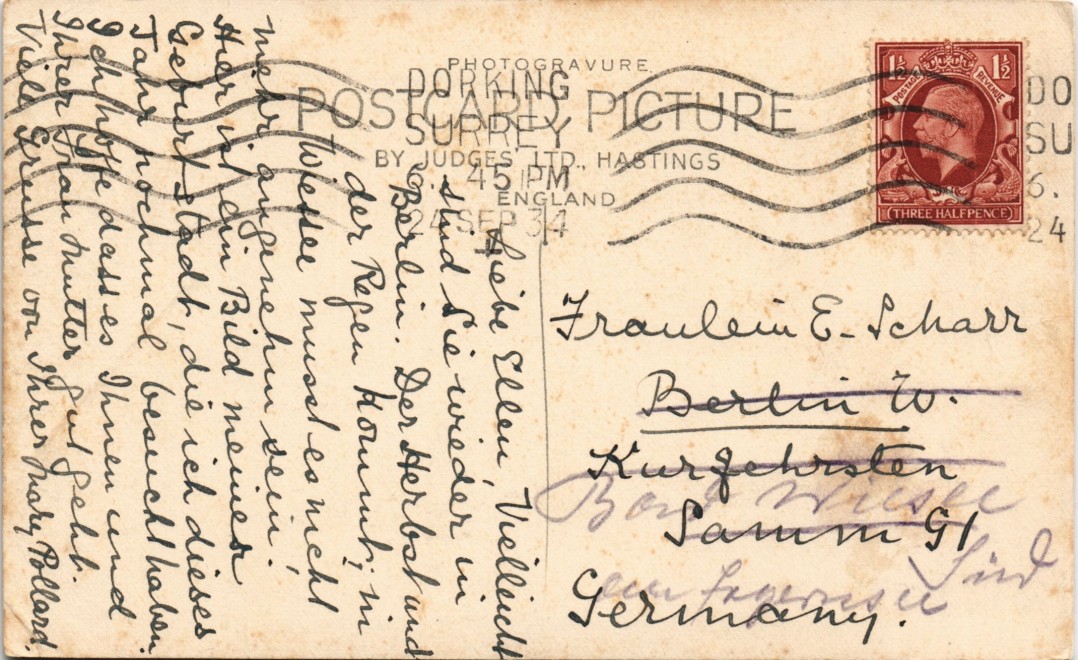 PHOTOGRAVURE
POSTCARD PICTURE
BY JUDGES' LTD., HASTINGS
ENGLAND
DORKING
SURREY
6. 45 PM
24 SEP 34
DO
SU
6.
24
1½ 1½
POSTAGE REVENUE
THREE HALFPENCE
Liebe Ellen, Vielleicht
sind Sie wieder in
Berlin. Der Herbst und
der Regen kommt; in
Wiessee musst es nicht
mehr angenehm sein!
Hier ist ein Bild meiner
Geburtstadt, die ich dieses
Jahr nochmal besucht haben.
Ich hoffe dass es Ihnen und
Ihrer Frau Mutter gut geht.
Viele Grüsse von Ihrer Mary Pollard.
Fraulein E. Scharr
Berlin W.
Kurfehrsten
Bad Wiessee
Damm 91
Süd
am Tegernsee
Germany.